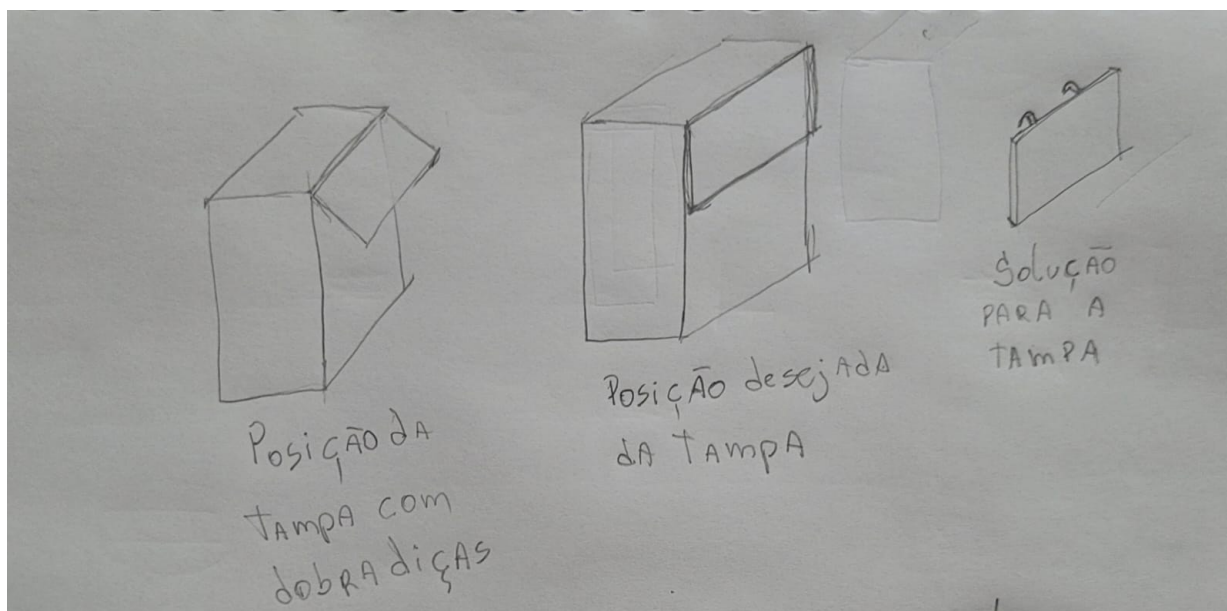 Posição da
tampa com
dobradiças
Posição desejada
da tampa
Solução
para a
tampa